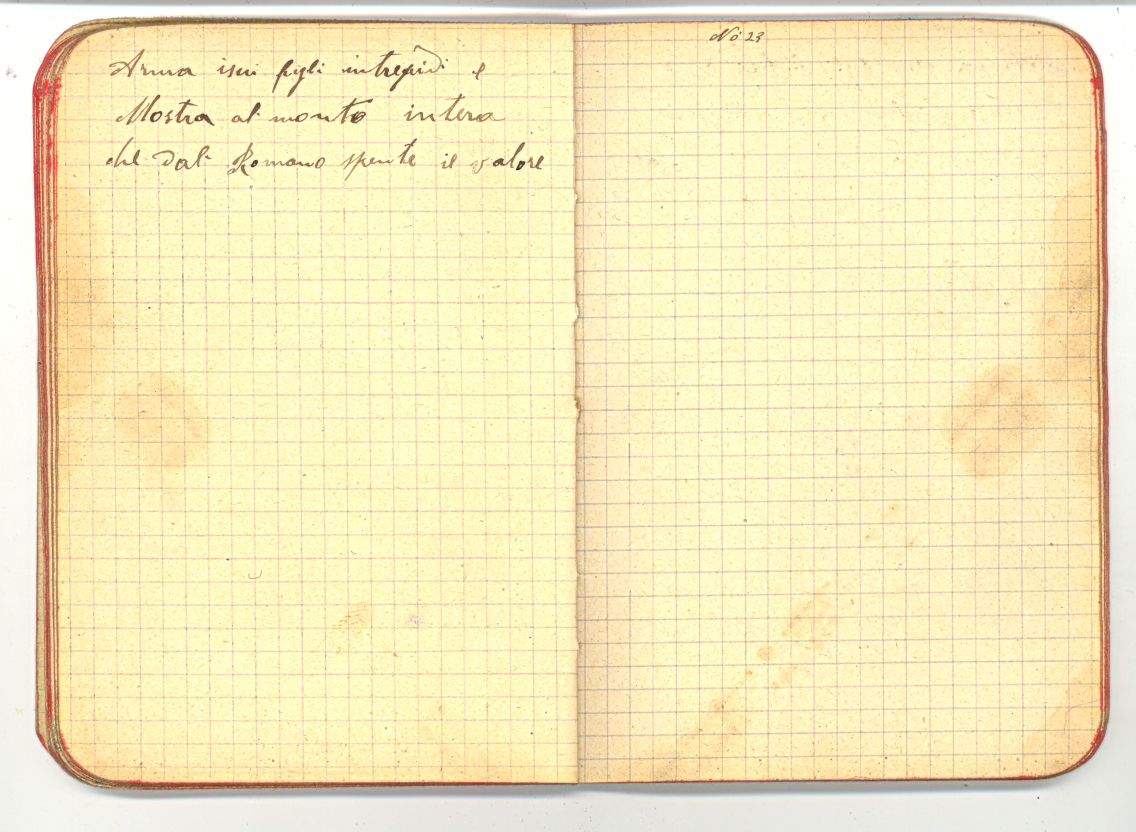 Arma isui figli intrepidi e
Mostra al monto intera
che dal Romano spente il valore
No 23